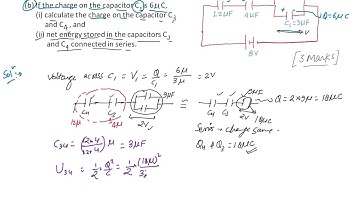 (b) If the charge on the capacitor C₁ is 6μC,
(i) calculate the charge on the capacitor C₃
and C₄, and
(ii) net energy stored in the capacitors C₃
and C₄ connected in series.
12μF
4μF
C₁=3μF
Q=6μC
V
8V
[3 Marks]
Solⁿ:→
Voltage across C₁ = V₁ = Q/C₁ = 6μ/3μ = 2V
C₃
C₄
12μ
4μ
9μF
2V
≅
C₃ C₄
9μF
2V
18μC
Q = 2×9μ = 18μC
Series → charge same.
Q₄ & Q₃ = 18μC
C₃₄ = (12×4)/(12+4) μ = 3μF
U₃₄ = 1/2 Q²/C = 1/2 × (18μ)²/3μ